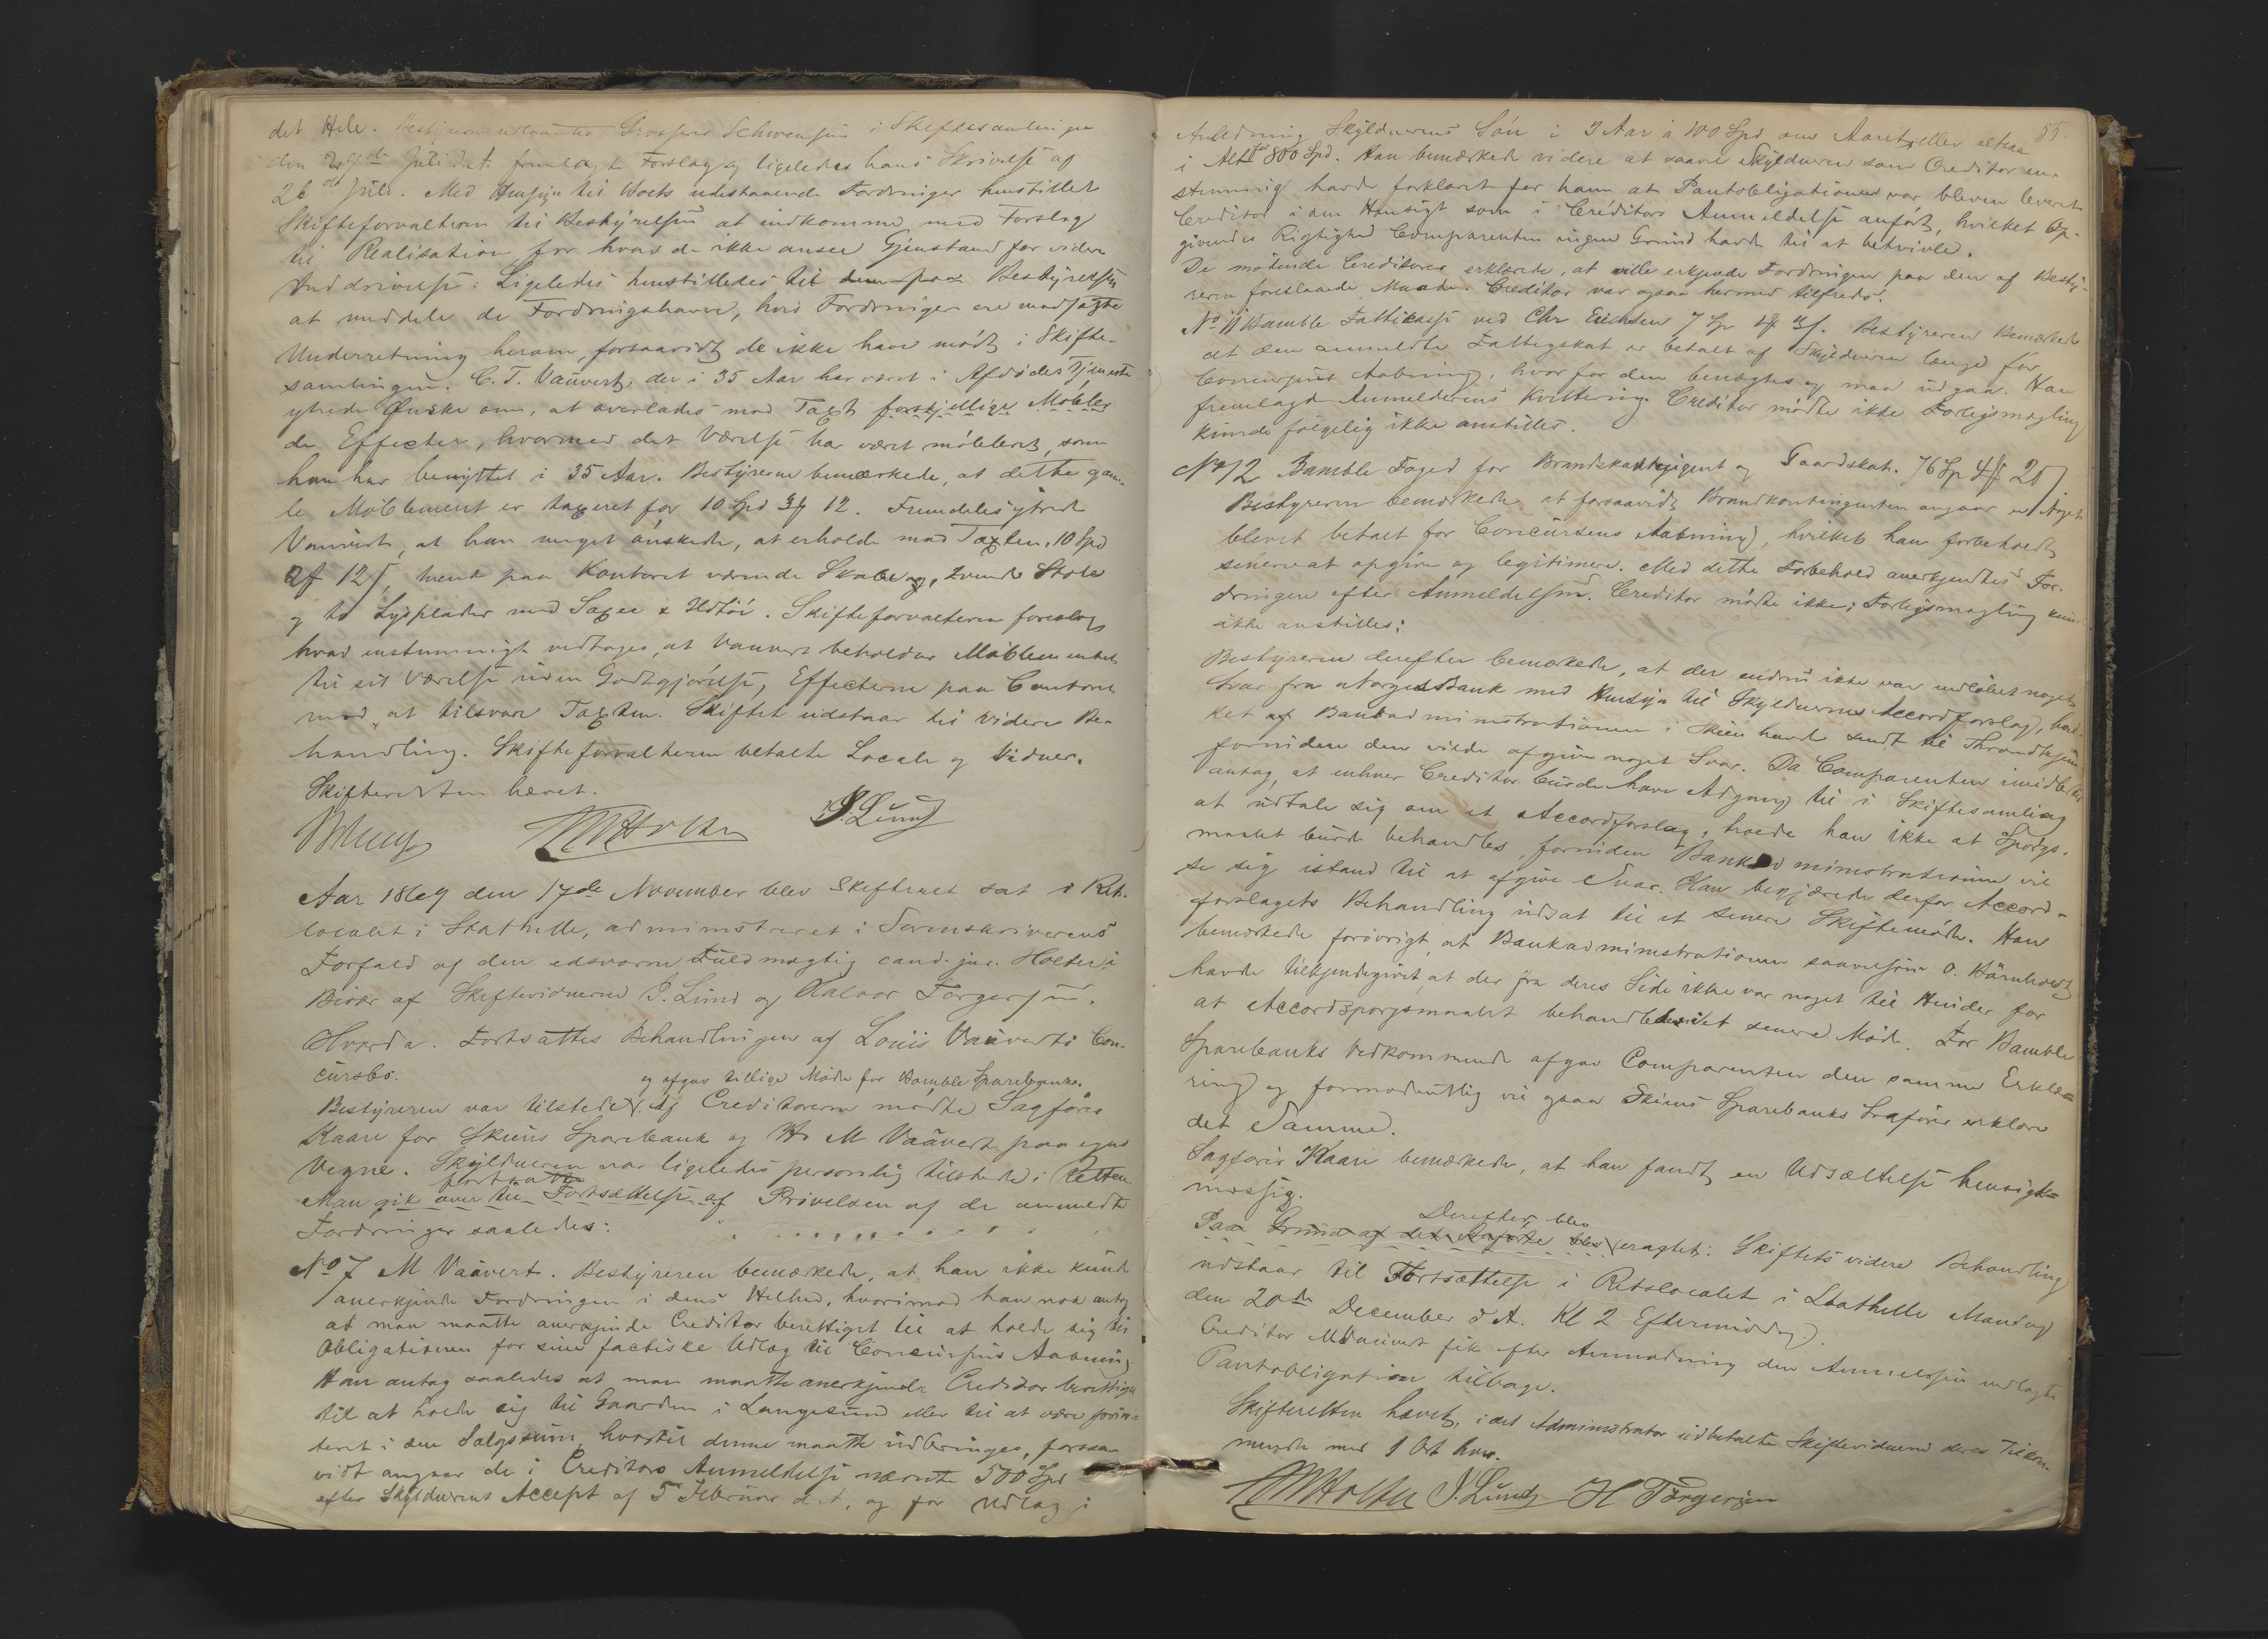 det Hele. Schwensen i Skiftesamlingen
den Juli d. A. fremlagte Forslag og ligeledes hans Skrivelse af
26de Juli. Med Hensyn til Boets udestaaende Fordringer henstillet
Skifteforvalteren til Bestyrelsen at indkomme med Forslag
til Realisation for hvad de ikke ansee Gjenstand for videre
Inddrivelse. Ligeledes henstilledes til Bestyrelsen
at meddele de Fordringshavere, hvis Fordringer ere modsagte
Underretning herom, forsaavidt de ikke have mødt i Skifte-
samlingen. C. T. Vauvert, der i 35 Aar har været i Afdødes Tjeneste
ytrede Ønske om, at overlades mod Taxt forskjellige Møbler
de Effecter, hvormed det Værelse har været møbleret, som
han har benyttet i 35 Aar. Bestyreren bemærkede, at dette gam-
le Möblement er taxeret for 10 Spd 3 12. Fremdeles ytrede
Vauvert, at han meget ønskede, at erholde mod Taxten, 10 Spd
12 ß, tvende paa Kontoret værende Skabe og tvende Stole
og to Lysplader med Saxe &. Skifteforvalteren foreslog
hvad enstemmigt vedtoges, at Vauvert beholder Möblementet
til sit Værelse uden Godtgjørelse, Effecterne paa Contoret
mod at tilsvare Taxten. Skiftet udstaar til videre Be-
handling. Skifteforvalteren betalte Locale og Vidner.
Skifteretten hævet.
Holter J. Lund
Aar 1869 den 17de November blev Skifteret sat i Ret-
localet i Stathelle, administreret i Sorenskriverens
Forfald af den edsvorne Fuldmægtig cand. jur. Holter i
Bivær af Skiftevidnerne J. Lund og Halvor Torgersen.
Hvorda. Fortsattes Behandlingen af Louis Vauverts Con-
cursbo.
og afgav tillige Møde for Bamble Sparebank.
Bestyreren var tilstede. Af Creditorerne mødte Sagfører
Kaare for Skiens Sparebank og Hr M Vauvert paa egne
Vegne. Skyldneren var ligeledes personlig tilstede i Retten.
fortsatte
Man gik over til Fortsættelse af Prøvelsen af de anmeldte
Fordringer saaledes:
No 7 M Vauvert. Bestyreren bemærkede, at han ikke kunde
anerkjende Fordringen i dens Helhed, hvorimod han nok antog
at man maatte anerkjende Creditor berettiget til at holde sig til
Obligationen for sine factiske Udlæg til Concursens Aabning.
Han antog saaledes at man maatte anerkjende Creditor berettiget
til at holde sig til Gaarden i Langesund eller til at være priori-
teret i den Salgssum, hvortil denne maatte udbringes, forsaa-
vidt angaar de i Creditors Anmeldelse nævnte 500 Spd
efter Skyldnerens Accept af 5 Februar d. A. og for Udlæg i
55.
Anledning Skyldnerens Søn i 3 Aar à 100 Spd om Aaret, eller altsaa
i Alt for 800 Spd. Han bemærkede videre at saavel Skyldneren som Creditor en-
stemmig havde forklaret for ham at Pantobligationen var bleven leveret
Creditor i den Hensigt som i Creditors Anmeldelse anført, hvilket Op-
givendes Rigtighed Comparenten ingen Grund havde til at betvivle.
De mødende Creditorer erklærede, at ville erkjende Fordringen paa den af Besty-
reren foreslaaede Maade. Creditor var ogsaa hermed tilfreds.
No 11 Bamble Fattikasse ved Chr Erichsen 7 Sp. Bestyreren bemærkede
at den anmeldte Fattigskat er betalt af Skyldneren længe før
Concursens Aabning, hvorfor den benægtes og maa udgaa. Han
fremlagde Anmelderens Kvittering. Creditor mødte ikke Forligsmægling
kunde følgelig ikke anstilles.
No 12 Bamble Foged for Brandskatkontigent og Gaardskat. 76 Sp 4 20
Bestyreren bemærkede at forsaavidt Brandkontingenten angaar er Noget
blevet betalt før Concursens Aabning, hvilket han forbeholdt
senere at opgive og legitimere. Med dette Forbehold anerkjendtes For-
dringen efter Anmeldelsen. Creditor mødte ikke; Forligsmægling kun
ikke anstilles.
Bestyreren derefter bemærkede, at der endnu ikke var indløbet noget
Svar fra Norges Bank med Hensyn til Skyldnerens Accordforslag, hvil-
ket af Bankadministrationen i Skien havde sendt til Throndhjem
forinden den vilde afgive noget Svar. Da Comparenten imidlertid
antog, at enhver Creditor burde have Adgang til i Skiftesamling
at udtale sig om et Accordforslag, troede han ikke at Spørgs-
maalet burde behandles, forinden Bankadministrationen vil
se sig istand til at afgive Svar. Han begjærede derfor Accord-
forslagets Behandling udsat til et senere Skiftemøde. Han
bemærkede forøvrigt at Bankadministrationen saavelsom O. Bärnholdt
havde tilkjendegivet, at der fra deres Side ikke var noget til Hinder for
at Accordspørgsmaalet behandledes i et senere Møde. For Bamble
Sparebanks Vedkommende afgav Comparenten den samme Erklæ-
ring og formodentlig vil ogsaa Skiens Sparebanks Sagfører erklære
det Samme.
Sagfører Kaare bemærkede, at han fandt en Udsættelse hensigts-
mæssig.
Derefter blev
Paa Grund af det Anførte blev eragtet: Skiftets videre Behandling
udstaar til Fortsættelse i Retslocalet i Stathelle Mandag
den 20de December d. A. Kl 2 Eftermiddag.
Creditor M Vauvert fik efter Anmodning den Anmeldelsen vedlagte
Pantobligation tilbage.
Skifteretten hævet, idet Administrator udbetalte Skiftevidnerne deres Tilkom-
mende med 1 Ort hver.
Holter J. Lund H Torgersen